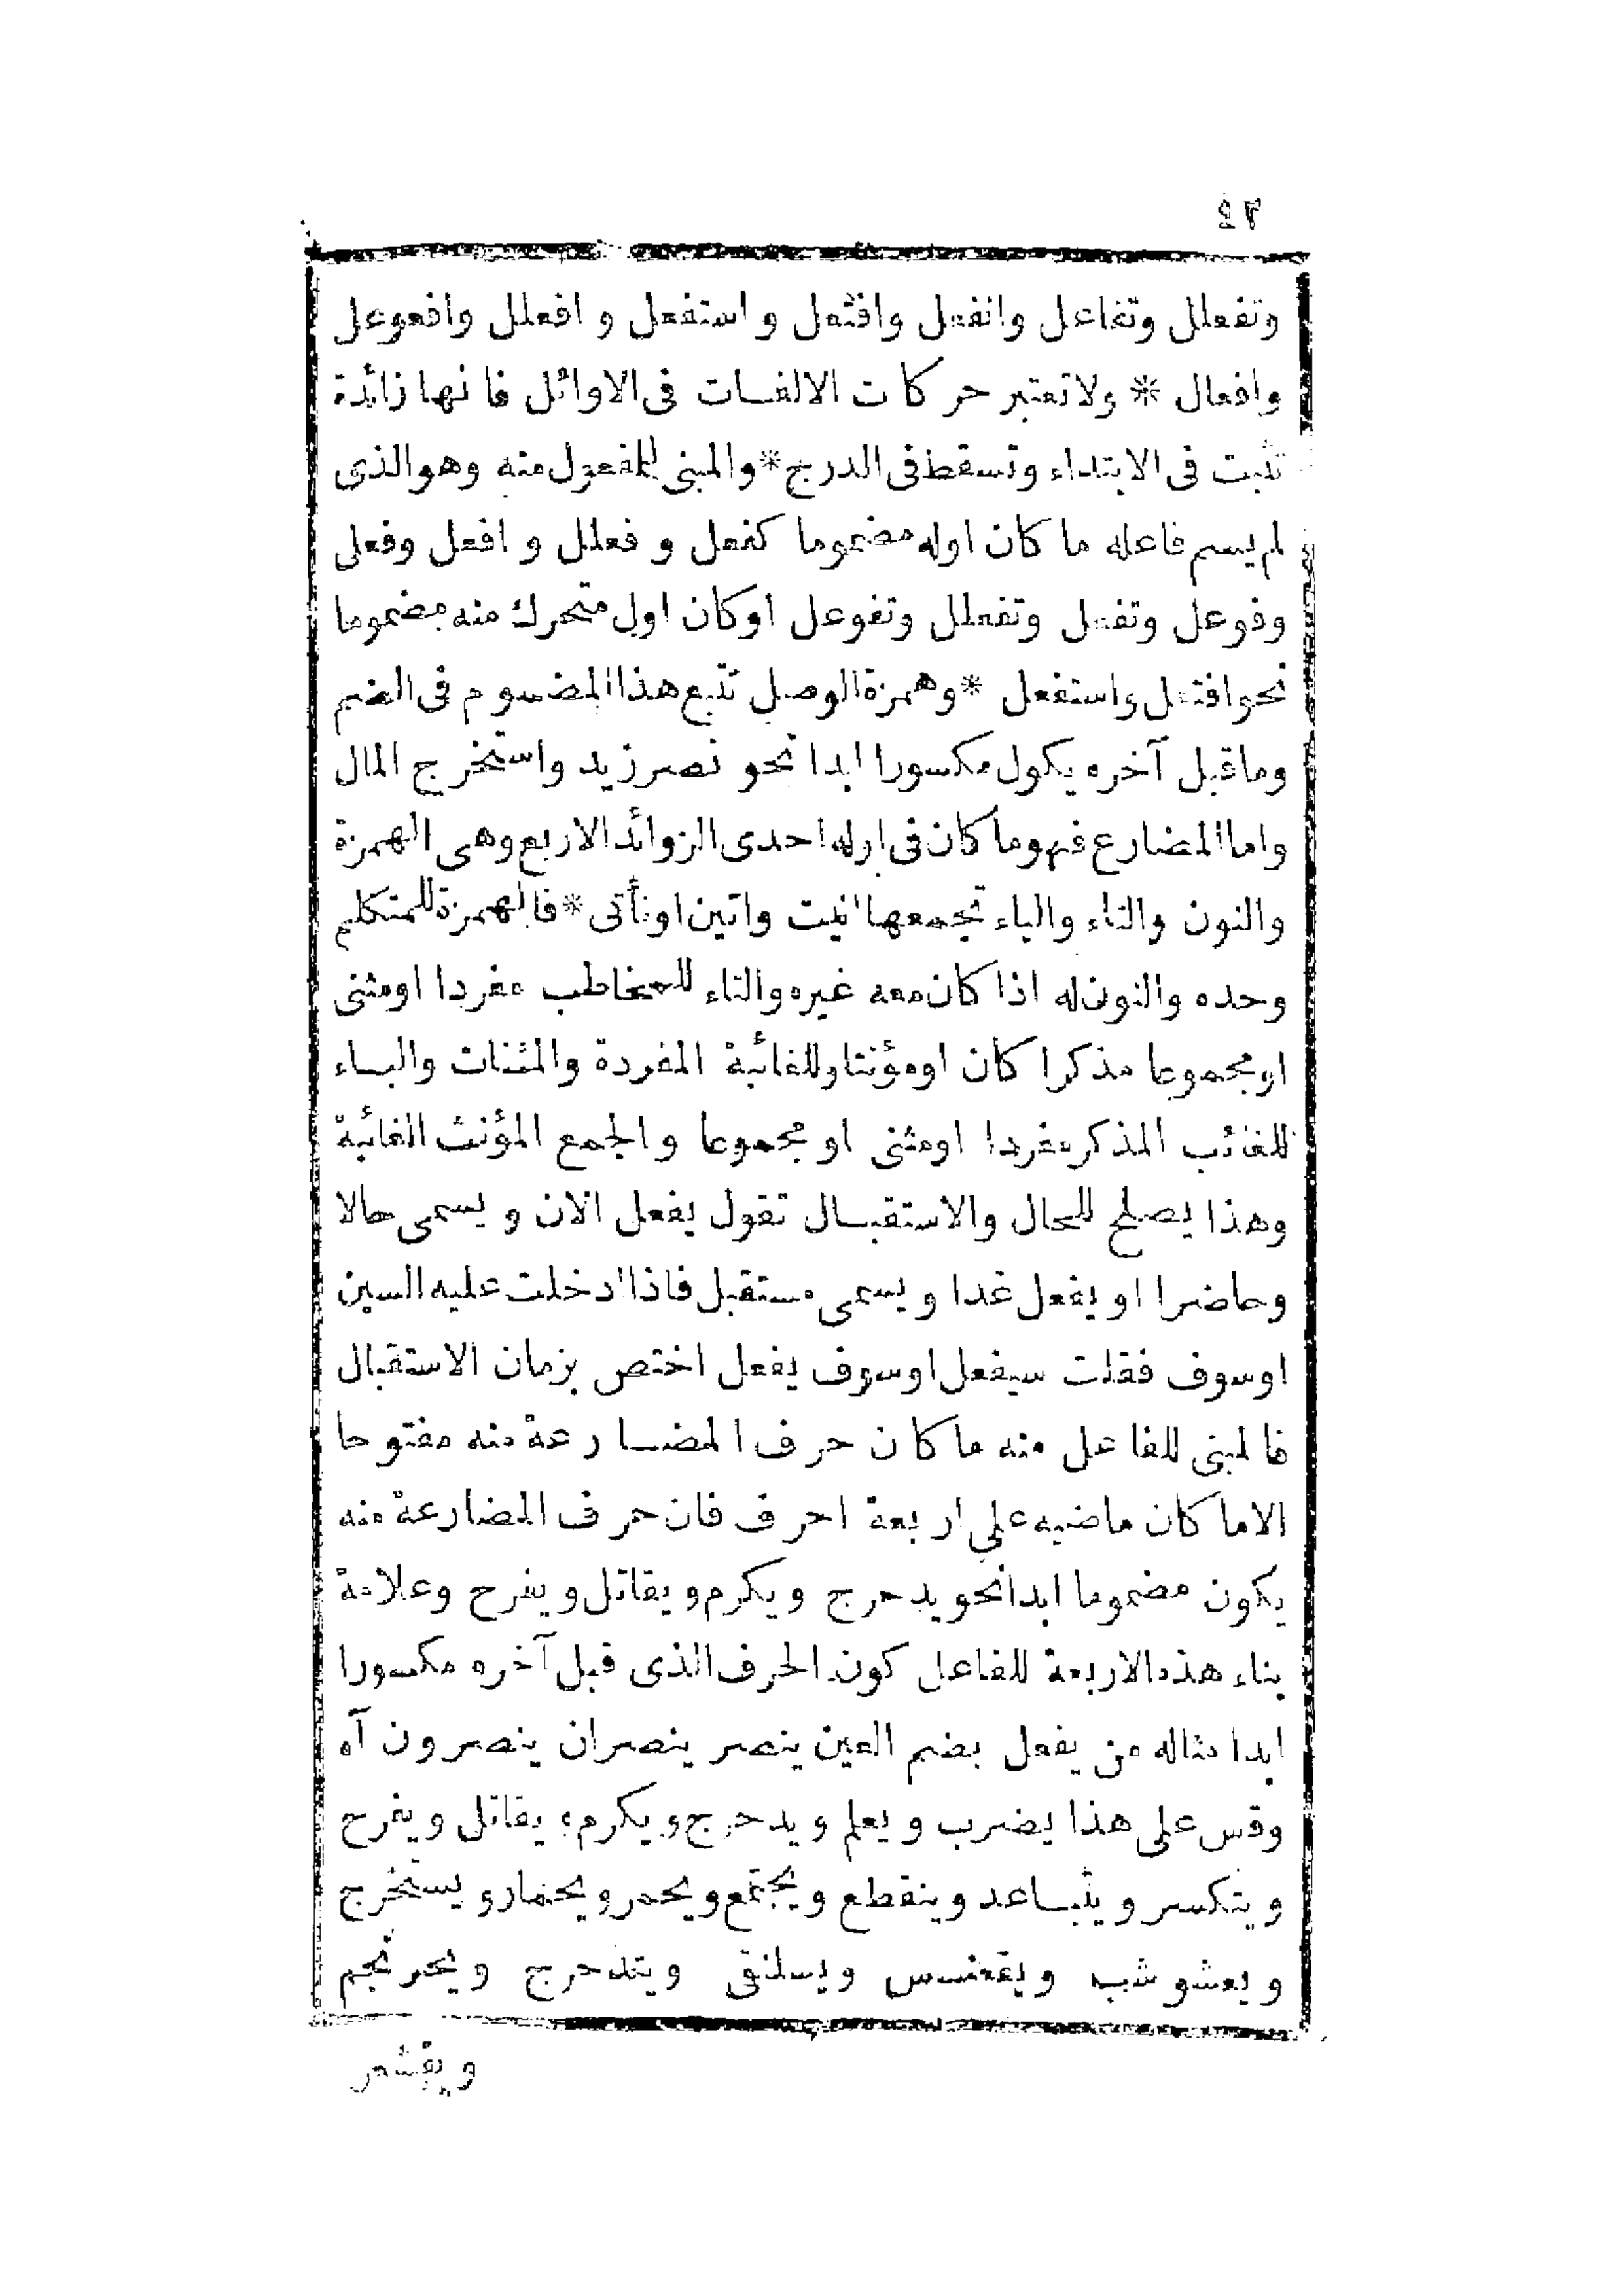 ٤٢
وتفعلل وتفاعل وانفعل وافتعل و استفعل و افعلل وافعوعل
وافعال * ولا تعتبر حركات الالفات فى الاوائل فانها زائدة
تثبت فى الابتداء وتسقط فى الدرج * والمبنى للمفعول منه وهو الذى
لم يسم فاعله ما كان اوله مضموما كفعل و فعلل و افعل وفعل
وفوعل وتفعل وتفعلل وتفوعل اوكان اول متحرك منه مضموما
نحو افتعل واستفعل * وهمزة الوصل تتبع هذا المضموم فى الضم
وما قبل آخره يكول مكسورا ابدا نحو نصر زيد واستخرج المال
واما المضارع فهو ما كان فى اوله احدى الزوائد الاربع وهى الهمزة
والنون والتاء والياء تجمعها انيت واتين او نأتى * فالهمزة للمتكلم
وحده والنون له اذا كان معه غيره والتاء للمخاطب مفردا اومثنى
اومجموعا مذكرا كان اومؤنثا وللغائبة المفردة والمثنات والياء
للغائب المذكر مفردا اومثنى او مجموعا والجمع المؤنث الغائبة
وهذا يصلح للحال والاستقبال تقول يفعل الان و يسمى حالا
وحاضرا او يفعل غدا و يسمى مستقبل فاذا ادخلت عليه السين
اوسوف فقلت سيفعل اوسوف يفعل اختص بزمان الاستقبال
فالمبنى للفاعل منه ما كان حرف المضارعة منه مفتوحا
الاما كان ماضيه على اربعة احرف فان حرف المضارعة منه
يكون مضموما ابدا نحو يدحرج ويكرم ويقاتل ويفرح وعلامة
بناء هذه الاربعة للفاعل كون الحرف الذى قبل آخره مكسورا
ابدا مثاله من يفعل بضم العين ينصر ينصران ينصرون آه
وقس على هذا يضرب و يعلم ويدحرج ويكرم و يقاتل ويفرح
ويتكسر ويتباعد وينقطع ويجتمع ويحمر ويحمار ويستخرج
ويعشوشب ويقعنسس ويسلنقى ويتدحرج ويحرنجم
ويقشعر